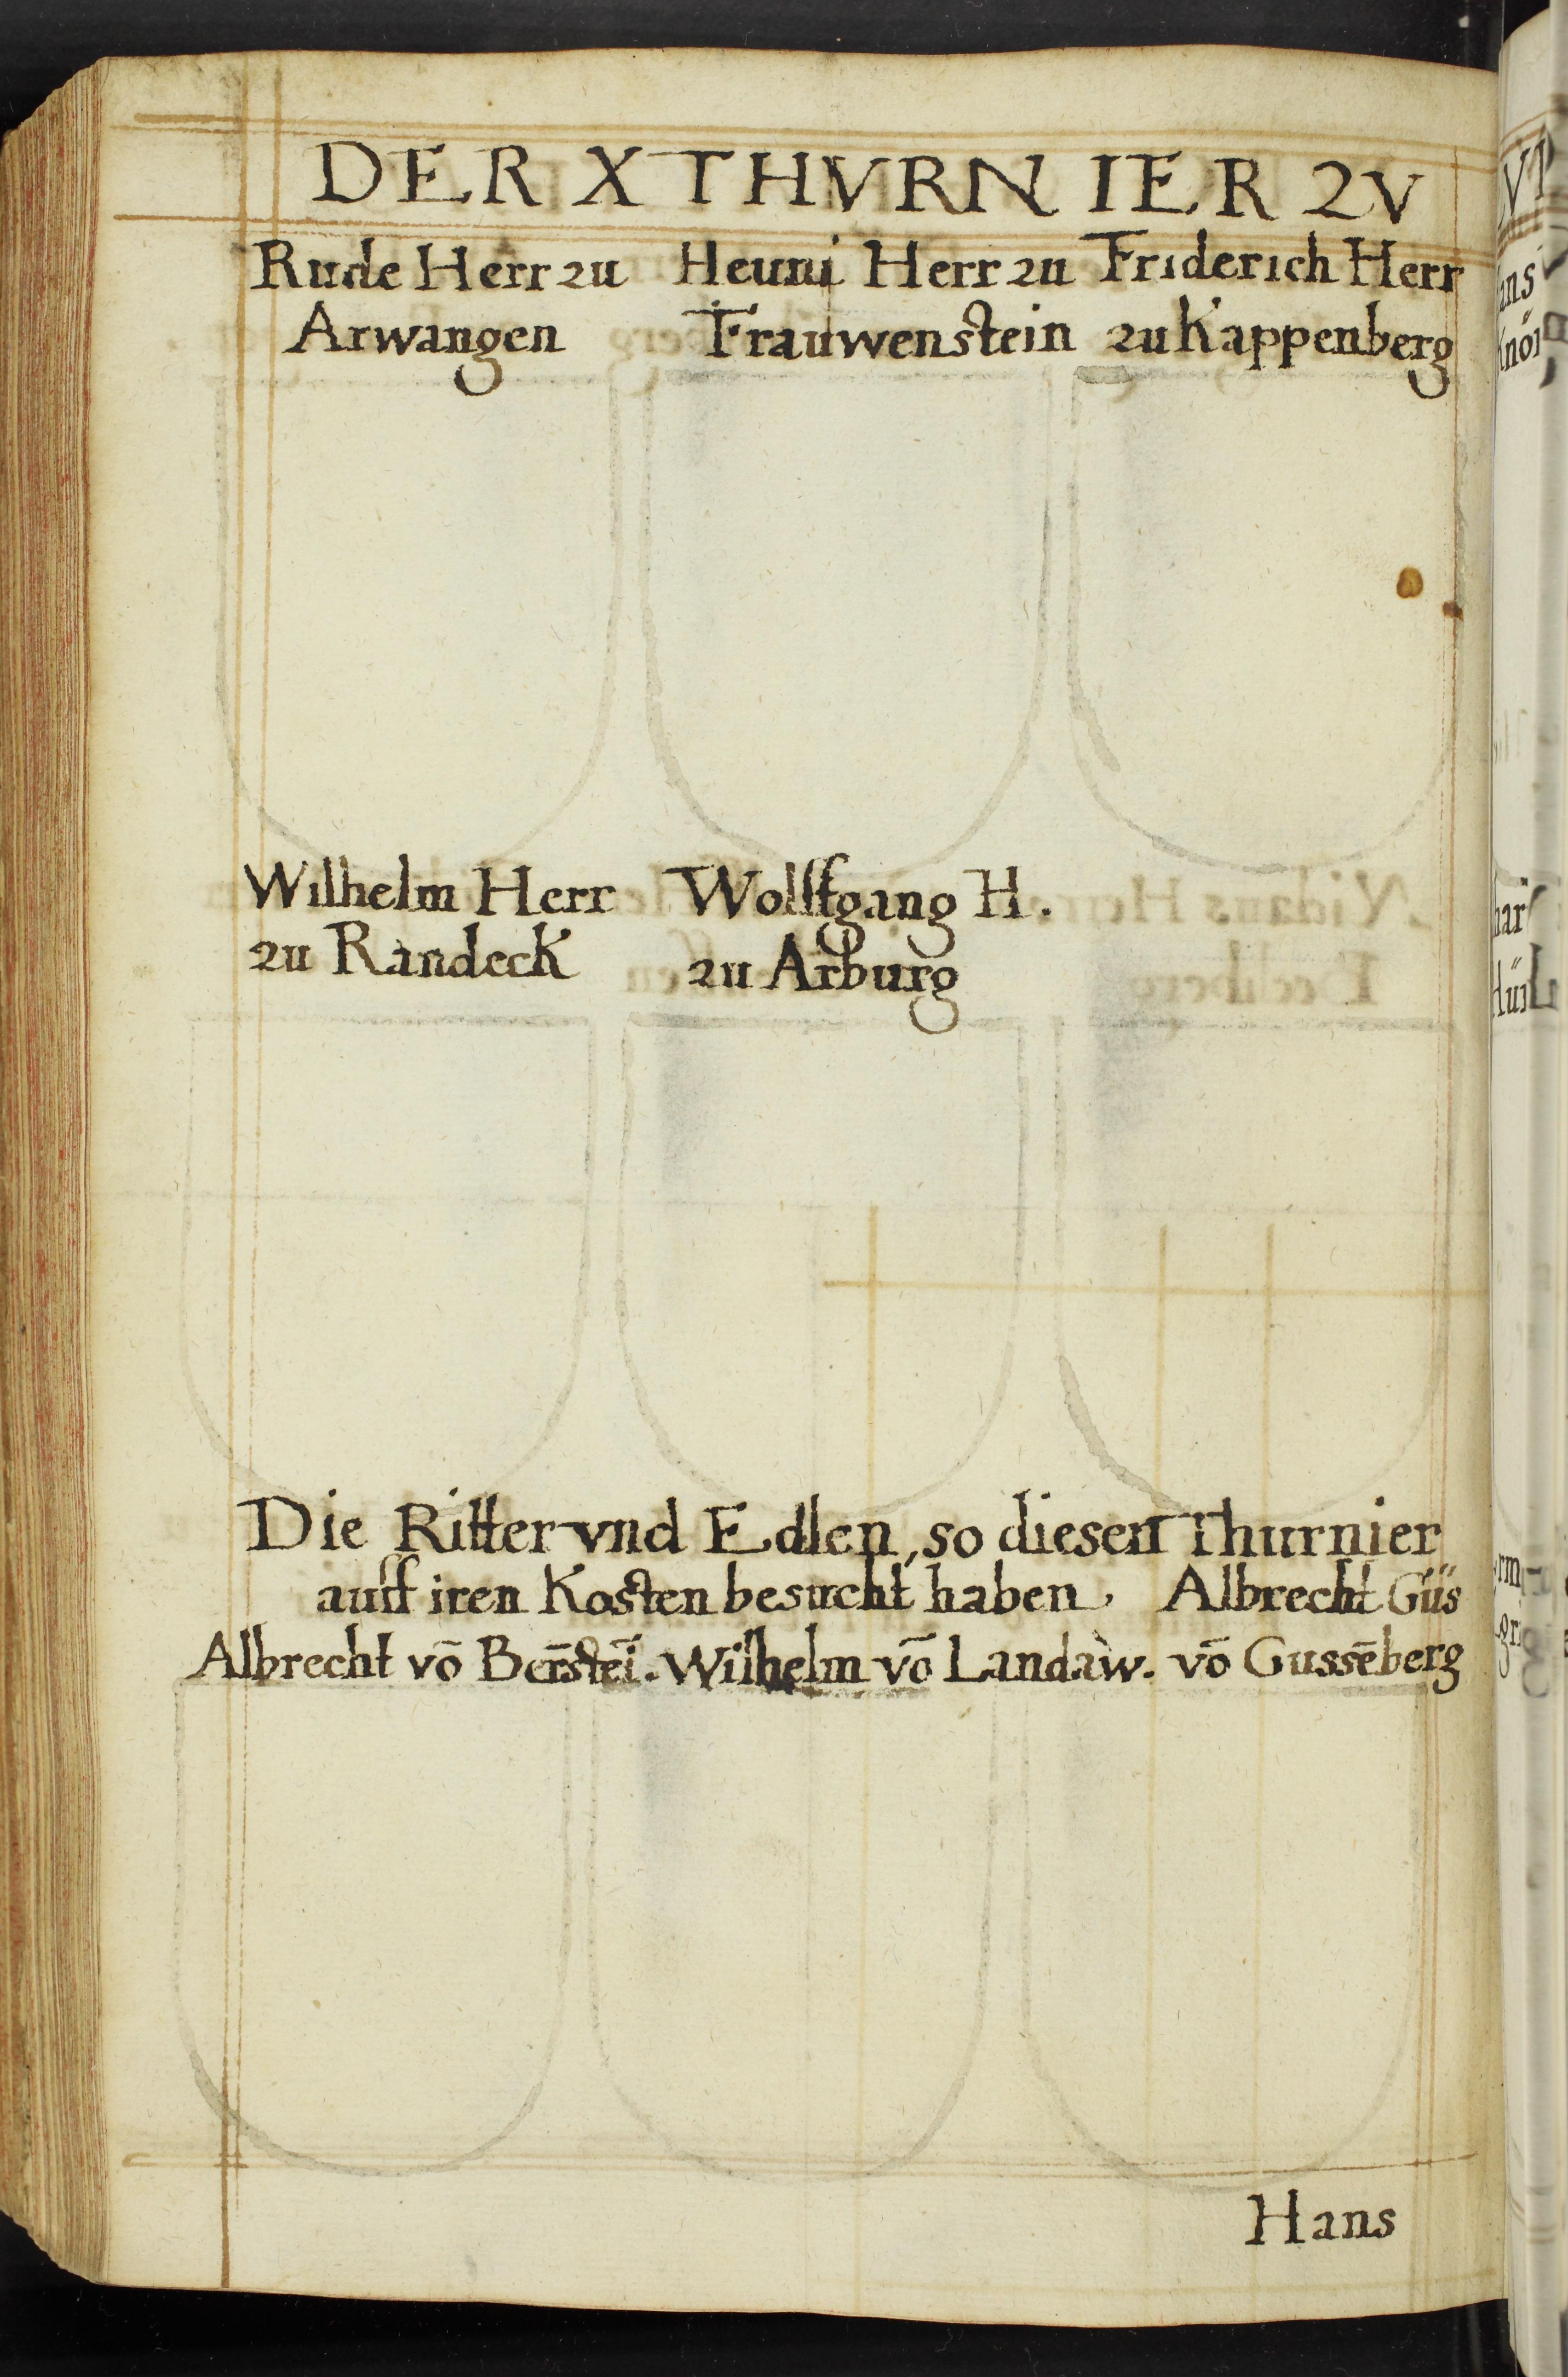 DER X THVRNIER ZV
Rude Herr zu
Arwangen
Heuni Herr zu
Frauwenstein
Friderich Herr
zu Kappenberg
Wilhelm Herr
zu Randeck
Wolffgang H.
zu Arburg
Die Ritter vnd Edlen, so diesen Thurnier
auff iren Kosten besucht haben. Albrecht Güs
Albrecht vō Bērstēī. Wilhelm vō Landaw. vō Gussēberg
Hans